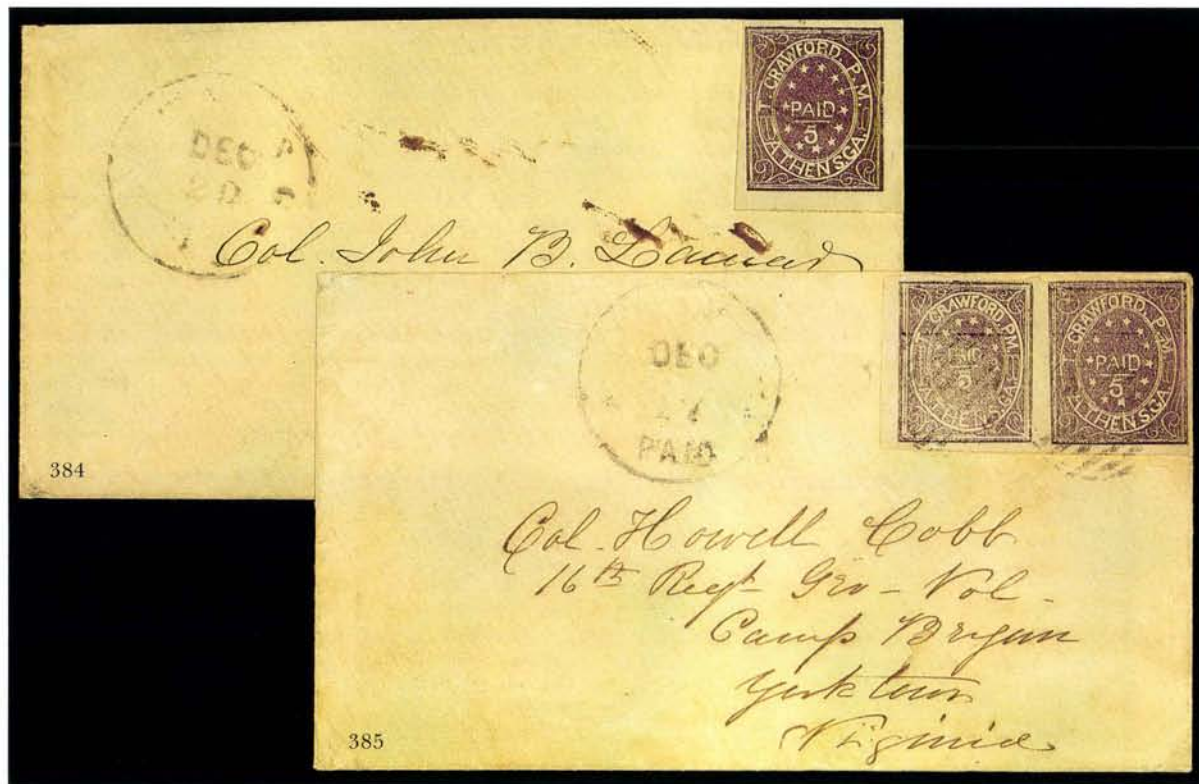 T. CRAWFORD, P.M.
PAID
5
ATHENS, GA.
DEC
20
Col. John B. Lamar
384
DEC
PAID
T. CRAWFORD, P.M.
PAID
5
ATHENS, GA.
T. CRAWFORD, P.M.
PAID
5
ATHENS, GA.
Col. Howell Cobb
16th Regt- Geo- Vol-
Camp Bryan
Yorktown
Virginia
385